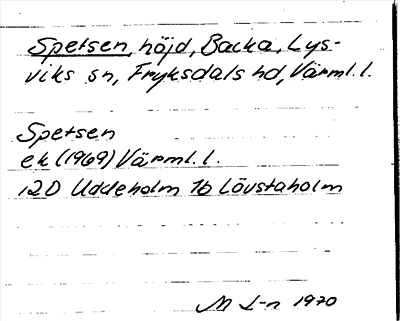 Spetsen, höjd, Backa, Lys-
viks sn, Fryksdals hd, Värml. l.
Spetsen
ek (1969) Värml. l.
12D Uddeholm 1b Lövstaholm
M L-n 1970